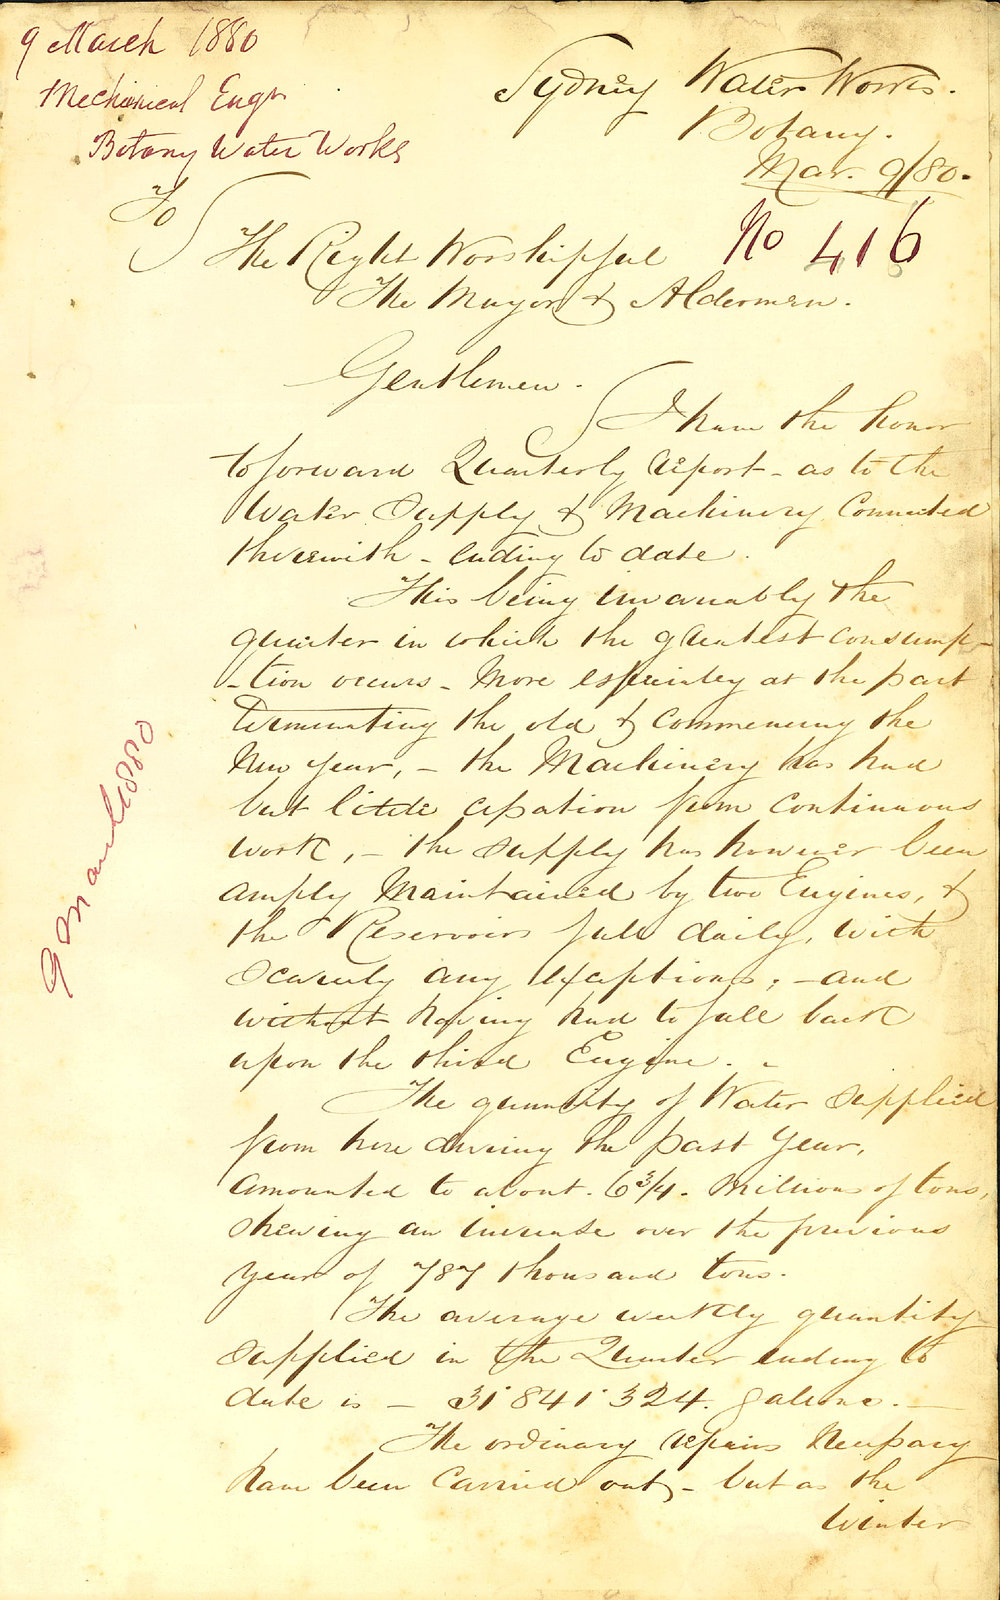 9 March 1880
Mechanical Engr
Botany Water Works
Sydney Water Works.
Botany.
Mar. 9/80.
No 416
To
The Right Worshipful
The Mayor & Aldermen.
Gentlemen.
I have the honor
to forward Quarterly report - as to the
Water Supply & Machinery Connected
therewith - ending to date.
This being invariably the
quarter in which the greatest consump-
-tion occurs - More especially at the part
terminating the old & commencing the
New Year, - the Machinery has had
but little cessation from continuous
work, - the supply has however been
amply Maintained by two Engines, &
the Reservoirs full daily, with
scarcely any exceptions; - and
without having had to fall back
upon the third Engine. -
The quantity of Water Supplied
from here during the past Year,
amounted to about. 6 3/4. Millions of tons,
shewing an increase over the previous
Year of 787 thousand tons.
The average weekly quantity
supplied in the Quarter ending to
date is - 31'841'324. galons. -
The ordinary repairs Necessary
have been Carried out, - but as the
Winter
9 March 1880